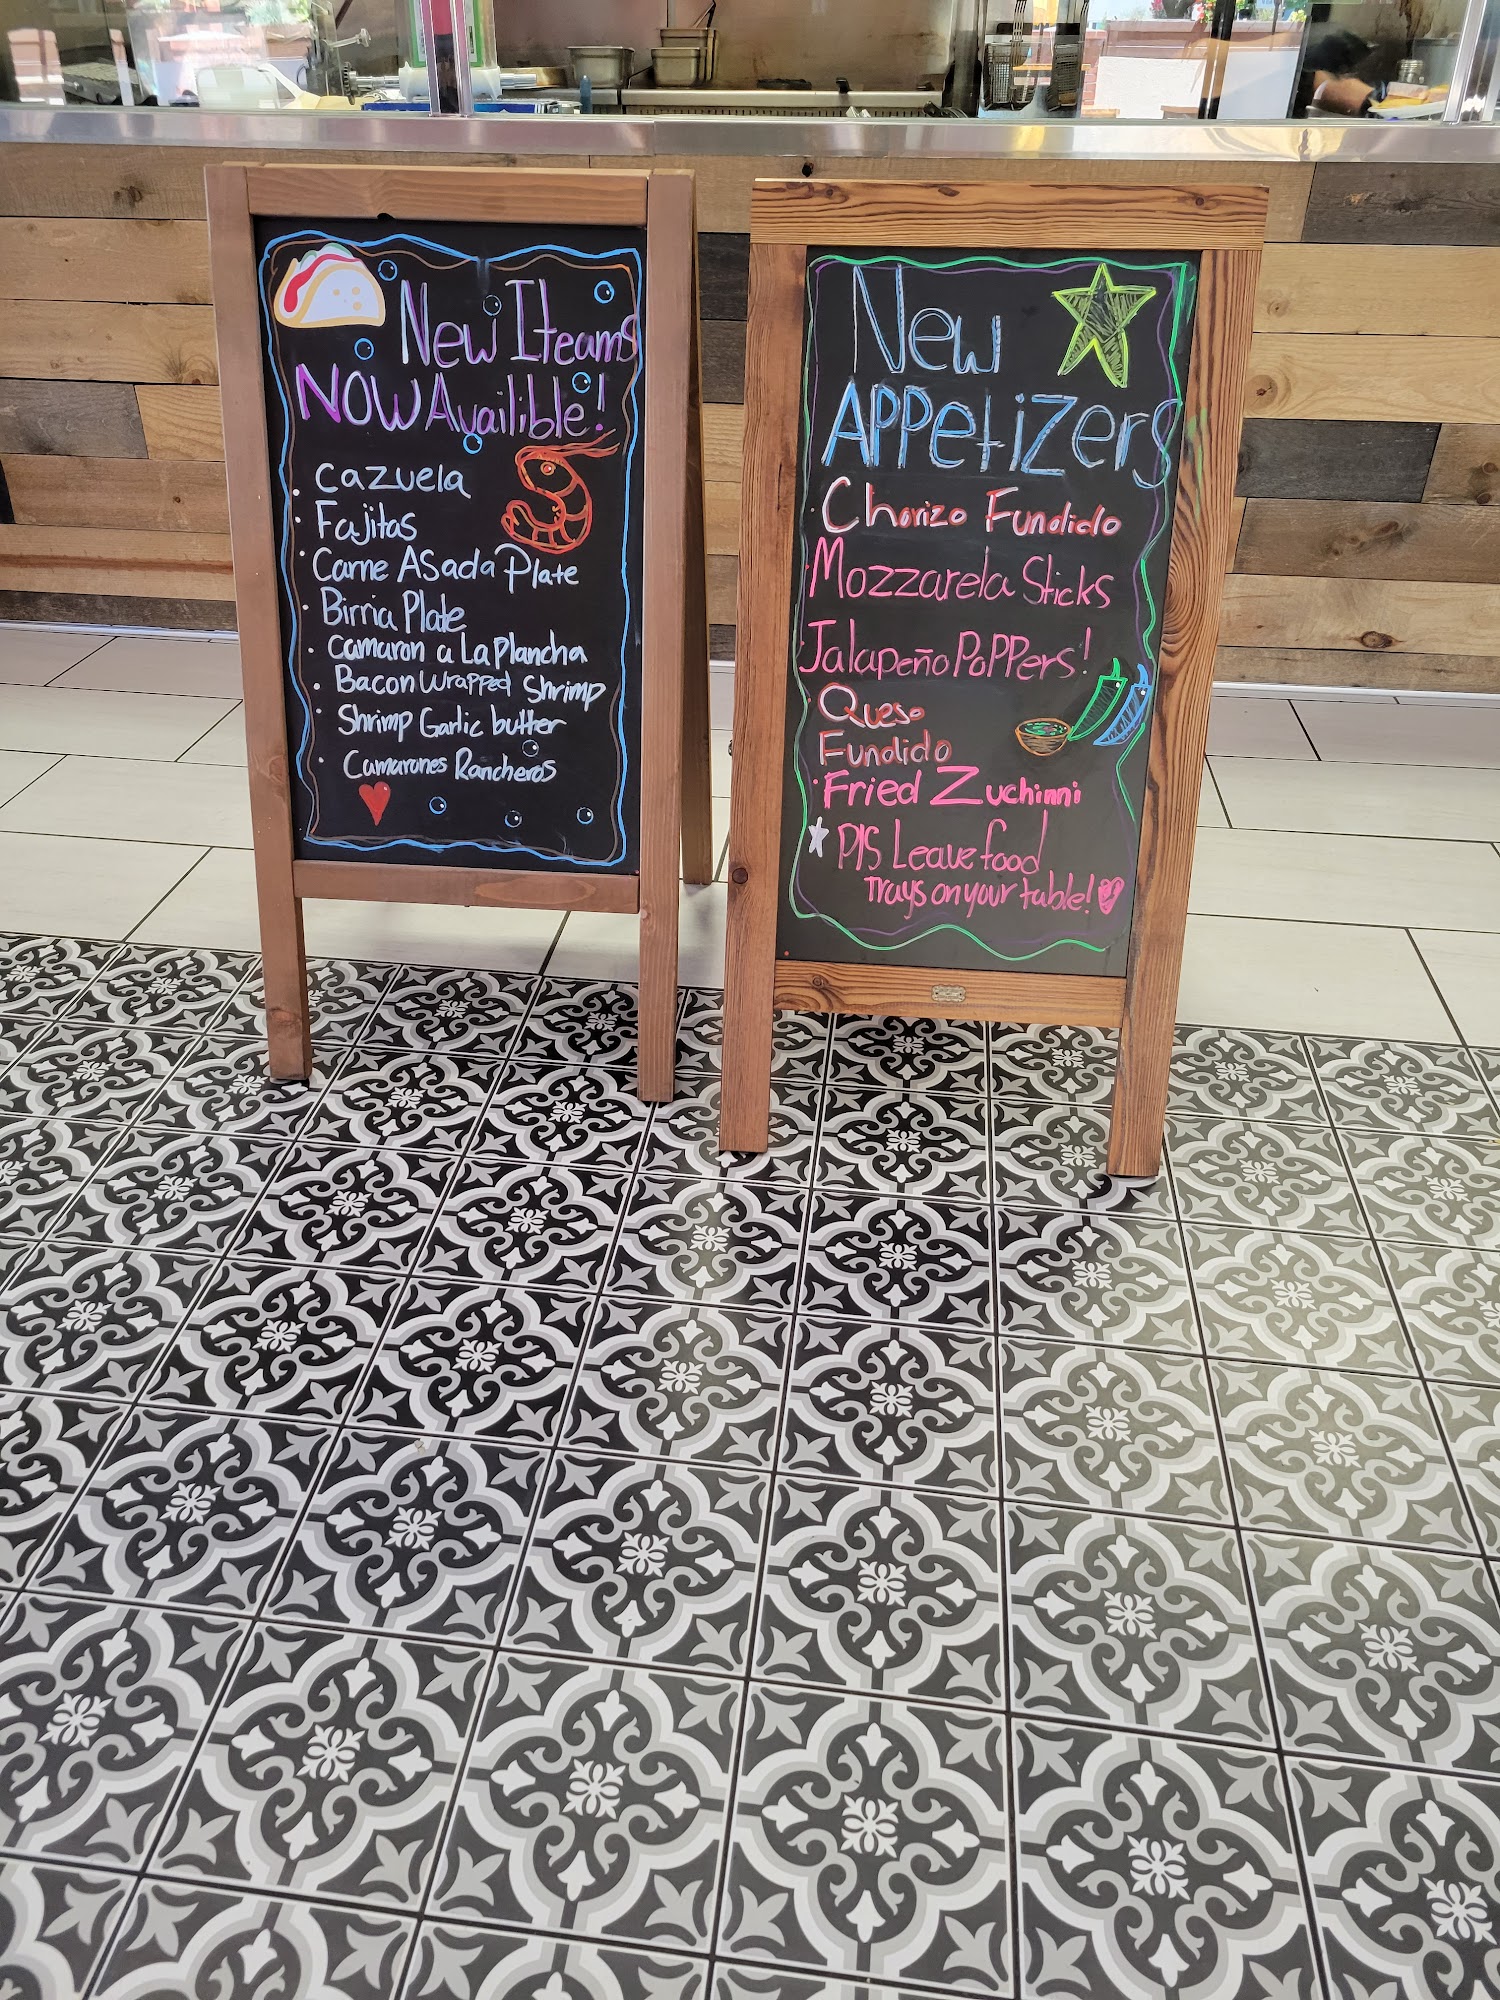 New Iteams
NOW Availible!
Cazuela
Fajitas
Carne ASada Plate
Birria Plate
camaron a La Plancha
Bacon Wrapped Shrimp
Shrimp Garlic butter
Camarones Rancheros
New
APPetizers
Chorizo Fundido
Mozzarela Sticks
Jalapeño PoPPers!
Queso
Fundido
Fried Zuchinni
P/S Leave food
Trays on your table!